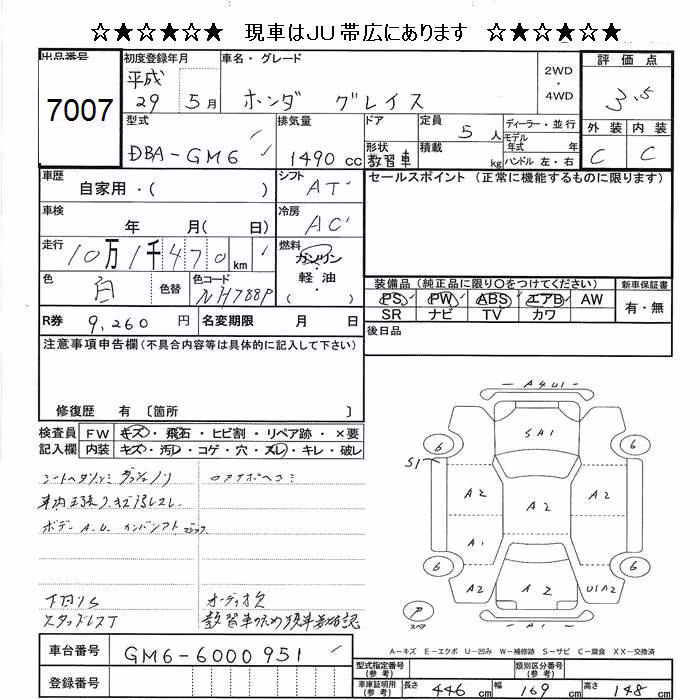 ☆★☆★☆★ 現車はJU帯広にあります ☆★☆★☆★
出品番号
7007
初度登録年月
平成
29 5月
車名・グレード
ホンダ グレイス
2WD
・
4WD
評価点
3.5
外装 内装
C C
型式
DBA-GM6
排気量
1490 cc
ドア
形状
教習車
定員
5 人
積載
kg
ディーラー・並行
モデル
年式 年
ハンドル 左・右
車歴
自家用・( )
シフト
AT
車検
年 月( 日)
冷房
AC
走行
10万1千470 km
燃料
ガソリン
・
軽油
( )
色
白
色替
色コード
NH788P
R券 9,260 円
名変期限 月 日
セールスポイント (正常に機能するものに限ります)
装備品(純正品に限り○をつけてください) 新車保証書
PS PW ABS エアB AW
SR ナビ TV カワ
有・無
後日品
注意事項申告欄(不具合内容等は具体的に記入して下さい)
修復歴 有 〔箇所 〕
検査員
記入欄
FW キズ・飛石・ヒビ割・リペア跡・×要
内装 キズ・汚レ・コゲ・穴・スレ・キレ・破レ
シートヘタリシミ
ボデー A.U.
下回りS
スタッドレスT
オーディオ欠
A4U1
SA1
6 6
S1
A2 A2 A2
A1
6 6
A2 A2 U1A2
A1
P
スペア
A-キズ E-エクボ U-凹み W-補修跡 S-サビ C-腐食 XX-交換済
車台番号 GM6-6000951
登録番号
型式指定番号
(参考)
類別区分番号
(参考)
車庫証明用
(参考)
長さ 446 cm 幅 169 cm 高さ 148 cm